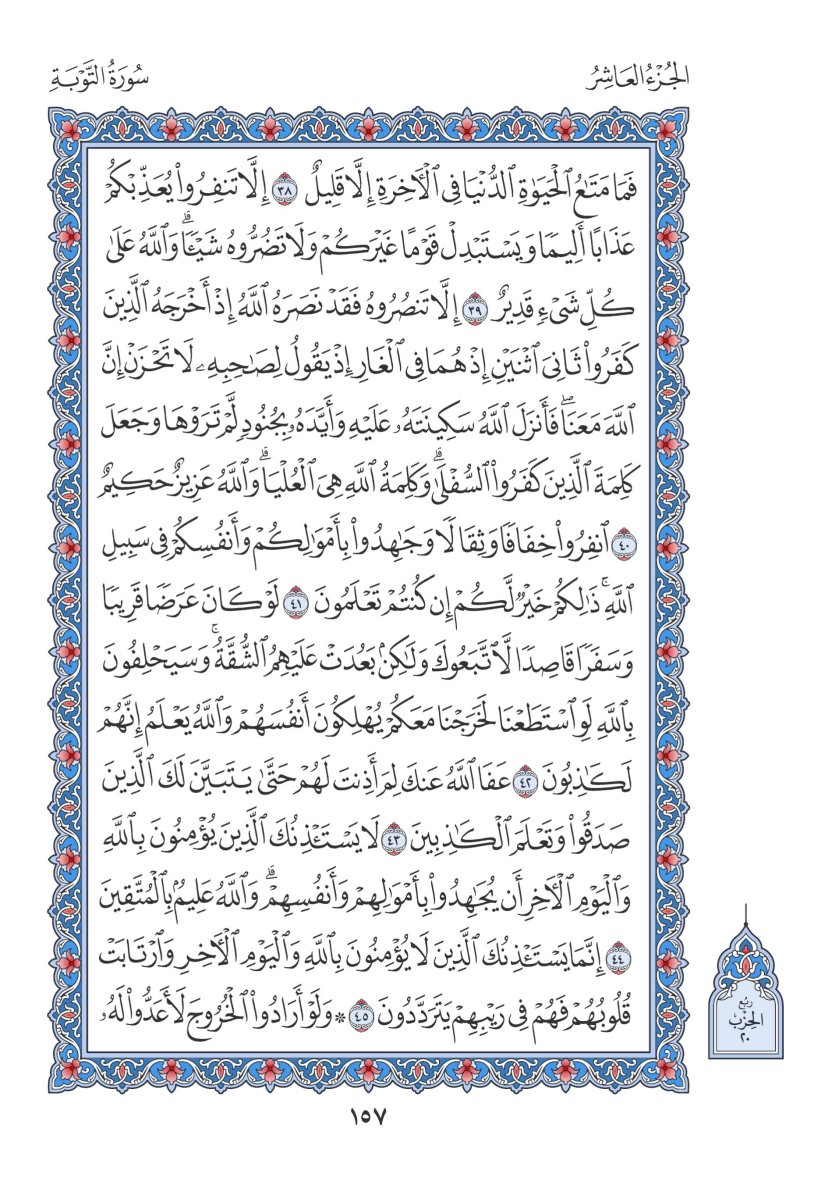 الجُزْءُ العَاشِرُ
سُورَةُ التَّوْبَةِ
فَمَا مَتَٰعُ ٱلْحَيَوٰةِ ٱلدُّنْيَا فِى ٱلْأٓخِرَةِ إِلَّا قَلِيلٌ ٣٨ إِلَّا تَنفِرُوا۟ يُعَذِّبْكُمْ
عَذَابًا أَلِيمًا وَيَسْتَبْدِلْ قَوْمًا غَيْرَكُمْ وَلَا تَضُرُّوهُ شَيْـًٔا ۗ وَٱللَّهُ عَلَىٰ
كُلِّ شَىْءٍ قَدِيرٌ ٣٩ إِلَّا تَنصُرُوهُ فَقَدْ نَصَرَهُ ٱللَّهُ إِذْ أَخْرَجَهُ ٱلَّذِينَ
كَفَرُوا۟ ثَانِىَ ٱثْنَيْنِ إِذْ هُمَا فِى ٱلْغَارِ إِذْ يَقُولُ لِصَٰحِبِهِۦ لَا تَحْزَنْ إِنَّ
ٱللَّهَ مَعَنَا ۖ فَأَنزَلَ ٱللَّهُ سَكِينَتَهُۥ عَلَيْهِ وَأَيَّدَهُۥ بِجُنُودٍ لَّمْ تَرَوْهَا وَجَعَلَ
كَلِمَةَ ٱلَّذِينَ كَفَرُوا۟ ٱلسُّفْلَىٰ ۗ وَكَلِمَةُ ٱللَّهِ هِىَ ٱلْعُلْيَا ۗ وَٱللَّهُ عَزِيزٌ حَكِيمٌ
٤٠ ٱنفِرُوا۟ خِفَافًا وَثِقَالًا وَجَٰهِدُوا۟ بِأَمْوَٰلِكُمْ وَأَنفُسِكُمْ فِى سَبِيلِ
ٱللَّهِ ۚ ذَٰلِكُمْ خَيْرٌ لَّكُمْ إِن كُنتُمْ تَعْلَمُونَ ٤١ لَوْ كَانَ عَرَضًا قَرِيبًا
وَسَفَرًا قَاصِدًا لَّٱتَّبَعُوكَ وَلَٰكِنۢ بَعُدَتْ عَلَيْهِمُ ٱلشُّقَّةُ ۚ وَسَيَحْلِفُونَ
بِٱللَّهِ لَوِ ٱسْتَطَعْنَا لَخَرَجْنَا مَعَكُمْ يُهْلِكُونَ أَنفُسَهُمْ وَٱللَّهُ يَعْلَمُ إِنَّهُمْ
لَكَٰذِبُونَ ٤٢ عَفَا ٱللَّهُ عَنكَ لِمَ أَذِنتَ لَهُمْ حَتَّىٰ يَتَبَيَّنَ لَكَ ٱلَّذِينَ
صَدَقُوا۟ وَتَعْلَمَ ٱلْكَٰذِبِينَ ٤٣ لَا يَسْتَـْٔذِنُكَ ٱلَّذِينَ يُؤْمِنُونَ بِٱللَّهِ
وَٱلْيَوْمِ ٱلْأٓخِرِ أَن يُجَٰهِدُوا۟ بِأَمْوَٰلِهِمْ وَأَنفُسِهِمْ ۗ وَٱللَّهُ عَلِيمٌۢ بِٱلْمُتَّقِينَ
٤٤ إِنَّمَا يَسْتَـْٔذِنُكَ ٱلَّذِينَ لَا يُؤْمِنُونَ بِٱللَّهِ وَٱلْيَوْمِ ٱلْأٓخِرِ وَٱرْتَابَتْ
قُلُوبُهُمْ فَهُمْ فِى رَيْبِهِمْ يَتَرَدَّدُونَ ٤٥ ۞ وَلَوْ أَرَادُوا۟ ٱلْخُرُوجَ لَأَعَدُّوا۟ لَهُۥ
ربع
الحِزْب
٢٠
١٥٧